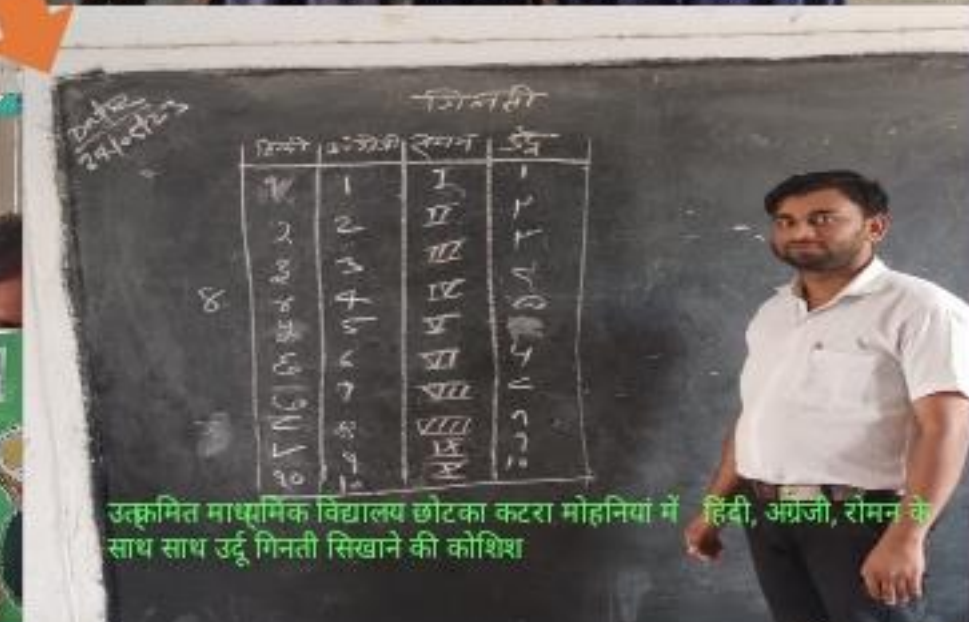 Date
गिनती
हिन्दी अंग्रेजी रोमन उर्दू
१ 1 I ١
२ 2 II
३ 3 III
४ 4 IV
५ 5 V
६ 6 VI
7 VII
8 VIII
9 IX
१० 10 X
उत्क्रमित माध्यमिक विद्यालय छोटका कटरा मोहनियां में हिंदी, अंग्रेजी, रोमन के
साथ साथ उर्दू गिनती सिखाने की कोशिश